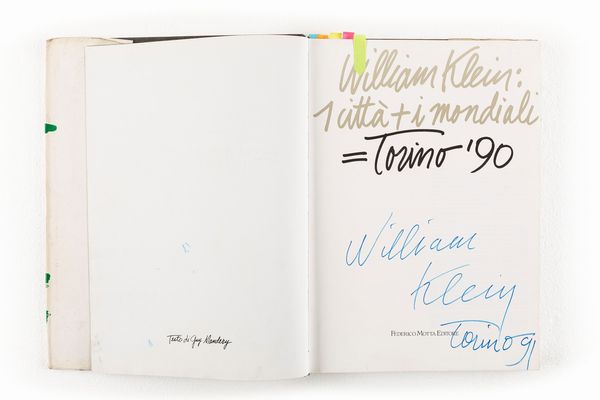 Testo di Guy Mandery
William Klein:
1 città + i mondiali
= Torino '90
William
Klein
FEDERICO MOTTA EDITORE
Torino 91